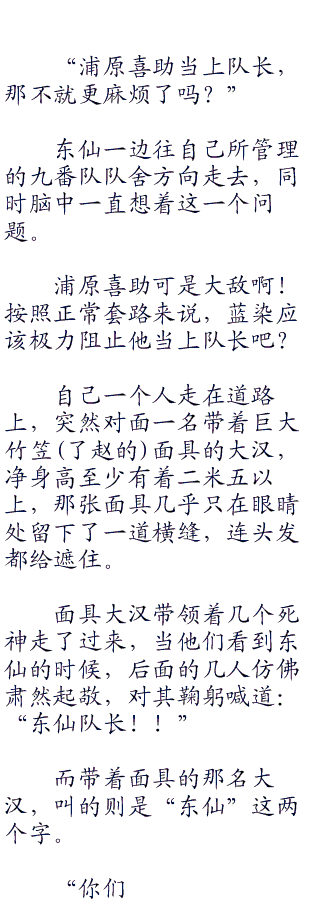 “浦原喜助当上队长，
那不就更麻烦了吗？”
东仙一边往自己所管理
的九番队队舍方向走去，同
时脑中一直想着这一个问
题。
浦原喜助可是大敌啊！
按照正常套路来说，蓝染应
该极力阻止他当上队长吧？
自己一个人走在道路
上，突然对面一名带着巨大
竹笠(了赵的)面具的大汉，
净身高至少有着二米五以
上，那张面具几乎只在眼睛
处留下了一道横缝，连头发
都给遮住。
面具大汉带领着几个死
神走了过来，当他们看到东
仙的时候，后面的几人仿佛
肃然起敬，对其鞠躬喊道：
“东仙队长！！”
而带着面具的那名大
汉，叫的则是“东仙”这两
个字。
“你们